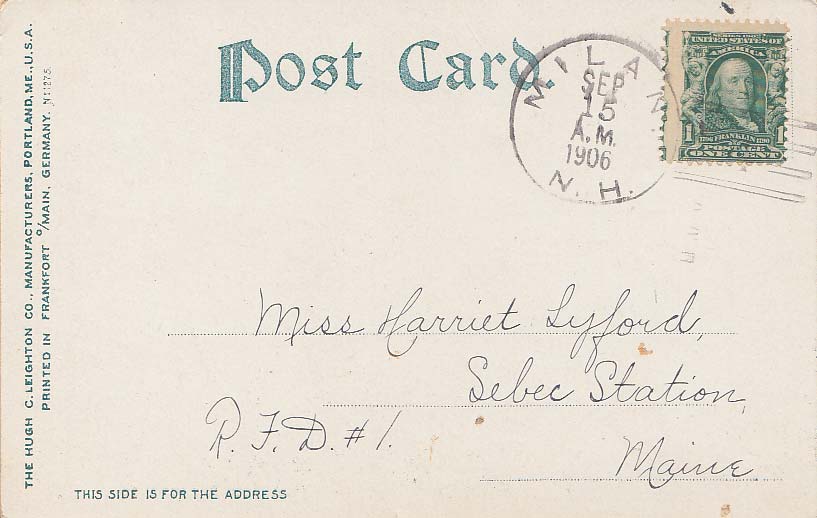 THE HUGH C. LEIGHTON CO., MANUFACTURERS, PORTLAND, ME., U.S.A.
PRINTED IN FRANKFORT O/MAIN, GERMANY. N11275.
Post Card.
MILAN
SEP
15
A.M.
1906
N.H.
SERIES 1902
UNITED STATES OF
AMERICA
1 1706 FRANKLIN 1790 1
POSTAGE
ONE CENT
Miss Harriet Lyford,
Sebec Station,
R.F.D. #1.
Maine
THIS SIDE IS FOR THE ADDRESS